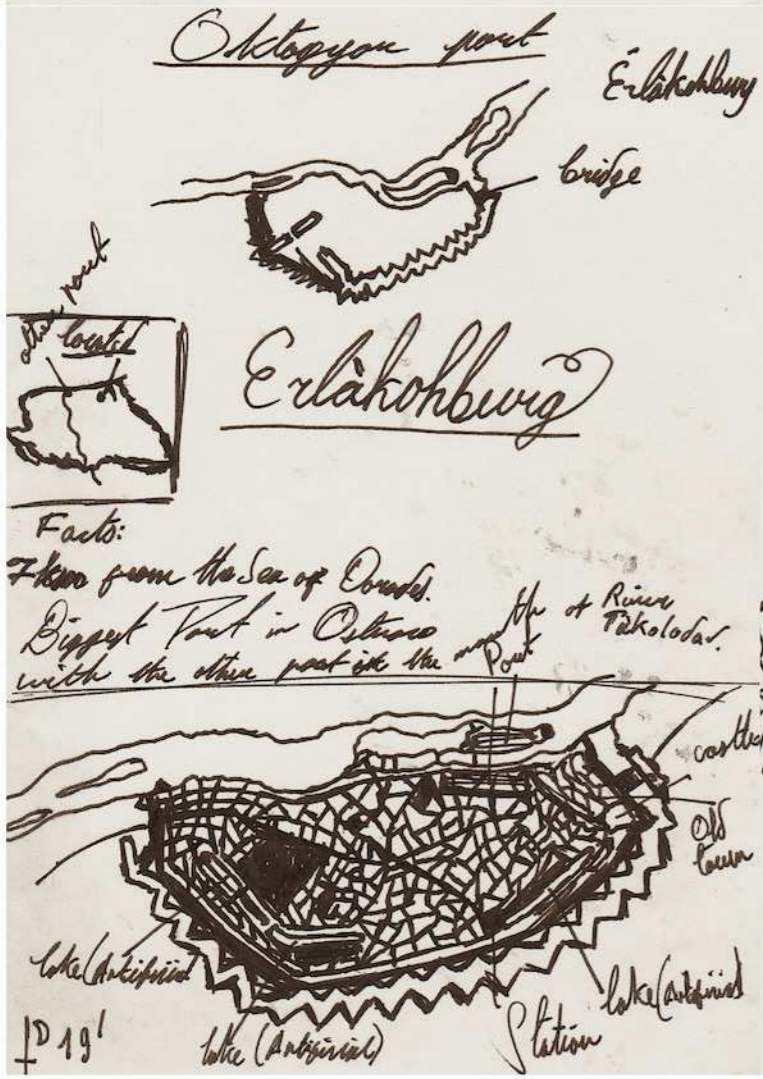 Oktogyon port
Erlàkohburg
bridge
other port
located
Erlàkohburg
Facts:
7km from the Sea of Dorades.
Biggest Port in
with the other port in the mouth of River
Tàkolodar.
Port
castle
Old
town
lake (Artifirial)
lake (Artifirial)
lake (Artifirial)
Station
19'